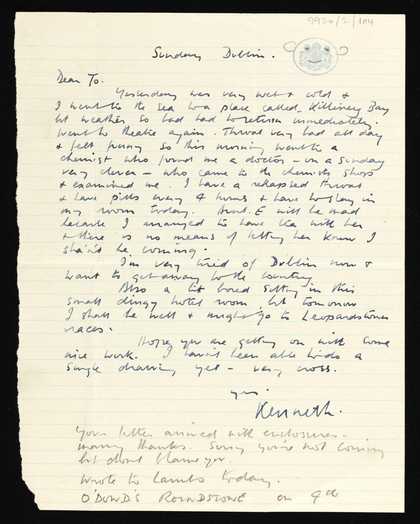 9920/2/104
Sunday Dublin.
Dear Jo.
Yesterday was very wet & cold &
I went to the sea to a place called Killiney Bay
but weather so bad had to return immediately.
Went to theatre again. Throat very bad all day
& felt funny so this morning went to a
chemist who found me a doctor – on a Sunday
very clever – who came to the chemists shop
& examined me. I have a relapsed throat
& have pills every 4 hours & have to stay in
my room today. Aunt E will be mad
because I arranged to have tea with her
& there is no means of letting her know I
shan't be coming.
I'm very tired of Dublin now &
want to get away to the country
Also a bit bored sitting in this
small dingy hotel room but tomorrow
I shall be well & might go to Leopardstown
races.
Hope you are getting on with some
nice work. I haven't been able to do a
single drawing yet – very cross.
Kenneth.
Your letter arrived with enclosures –
many thanks. Sorry you're not coming
but don't blame you.
Wrote to Lambs today.
O'DOWDS ROUNDSTONE on 9th